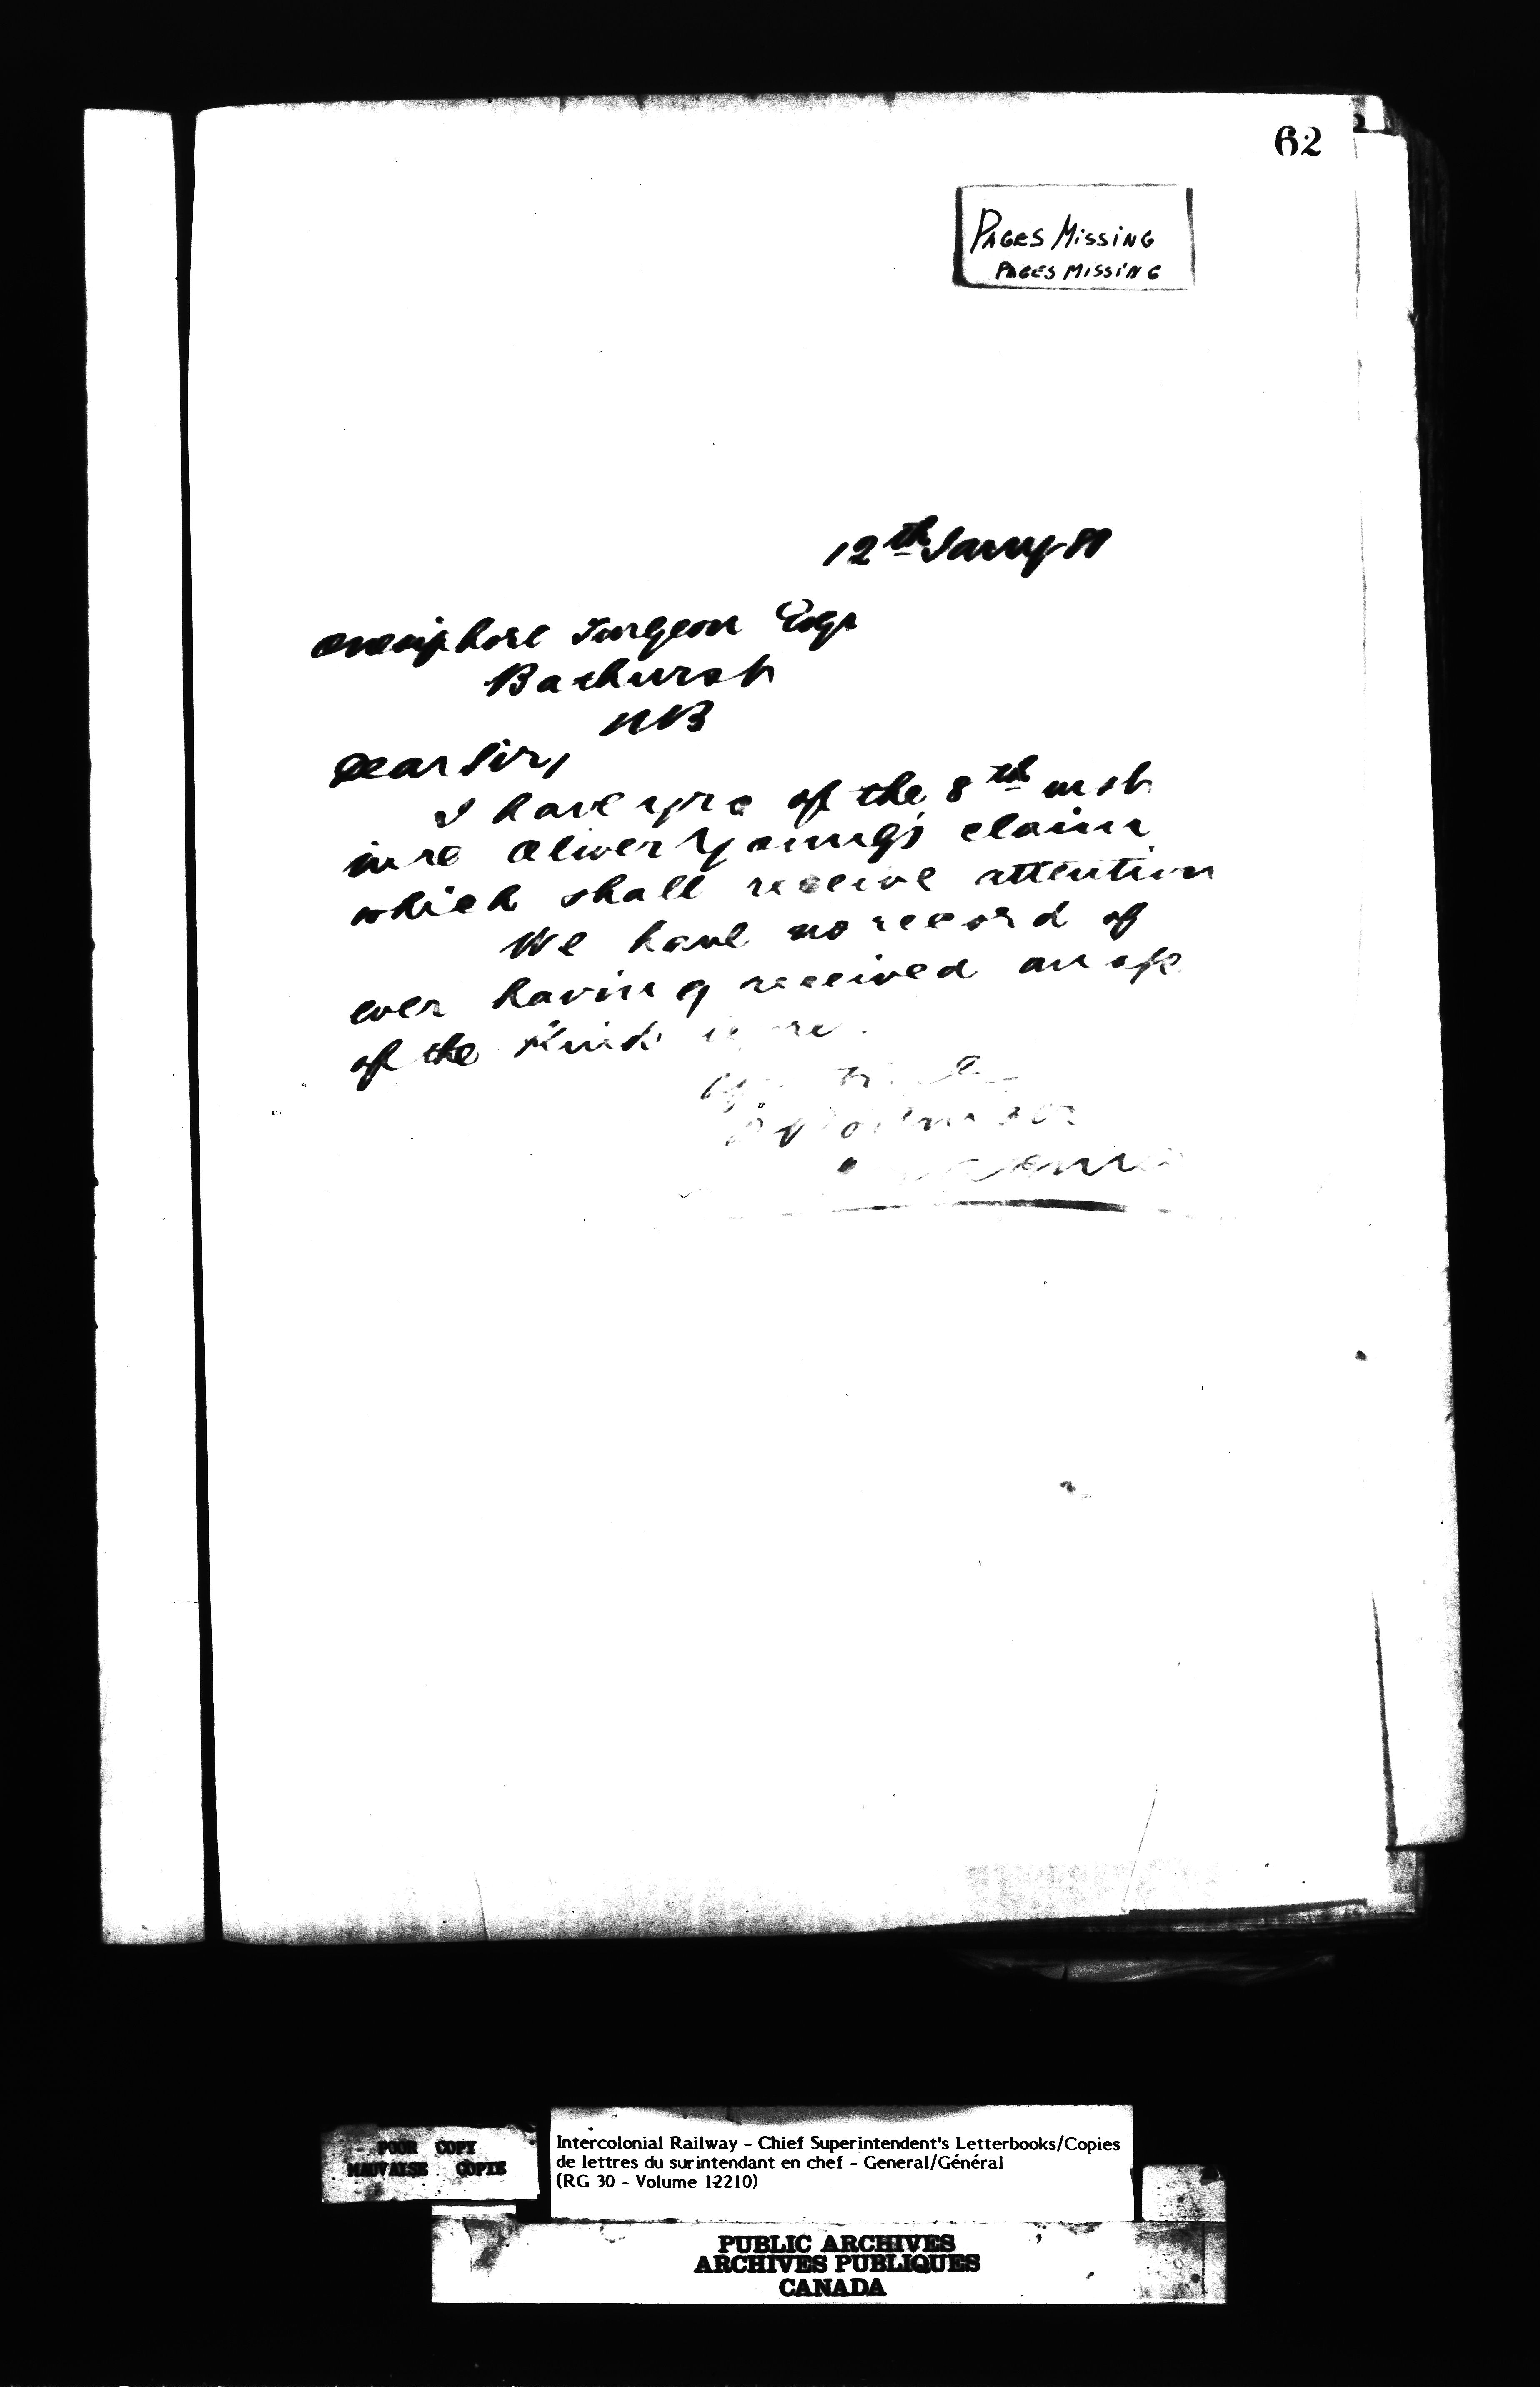 62
PAGES MISSING
PAGES MISSING
12th Jany
Onesiphore Turgeon Esqr
Bathurst
NB
Dear Sir,
I have yrs of the 8th inst
in re Oliver Young's claim
which shall receive attention
We have no record of
ever having received an
of the kind
POOR COPY
MAUVAISE COPIE
Intercolonial Railway - Chief Superintendent's Letterbooks/Copies
de lettres du surintendant en chef - General/Général
(RG 30 - Volume 12210)
PUBLIC ARCHIVES
ARCHIVES PUBLIQUES
CANADA